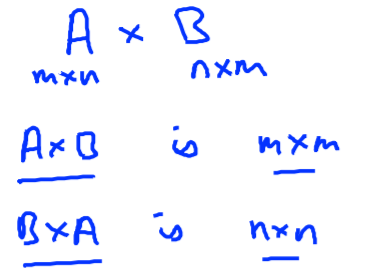 A × B
m×n n×m
A×B is m×m
B×A is n×n